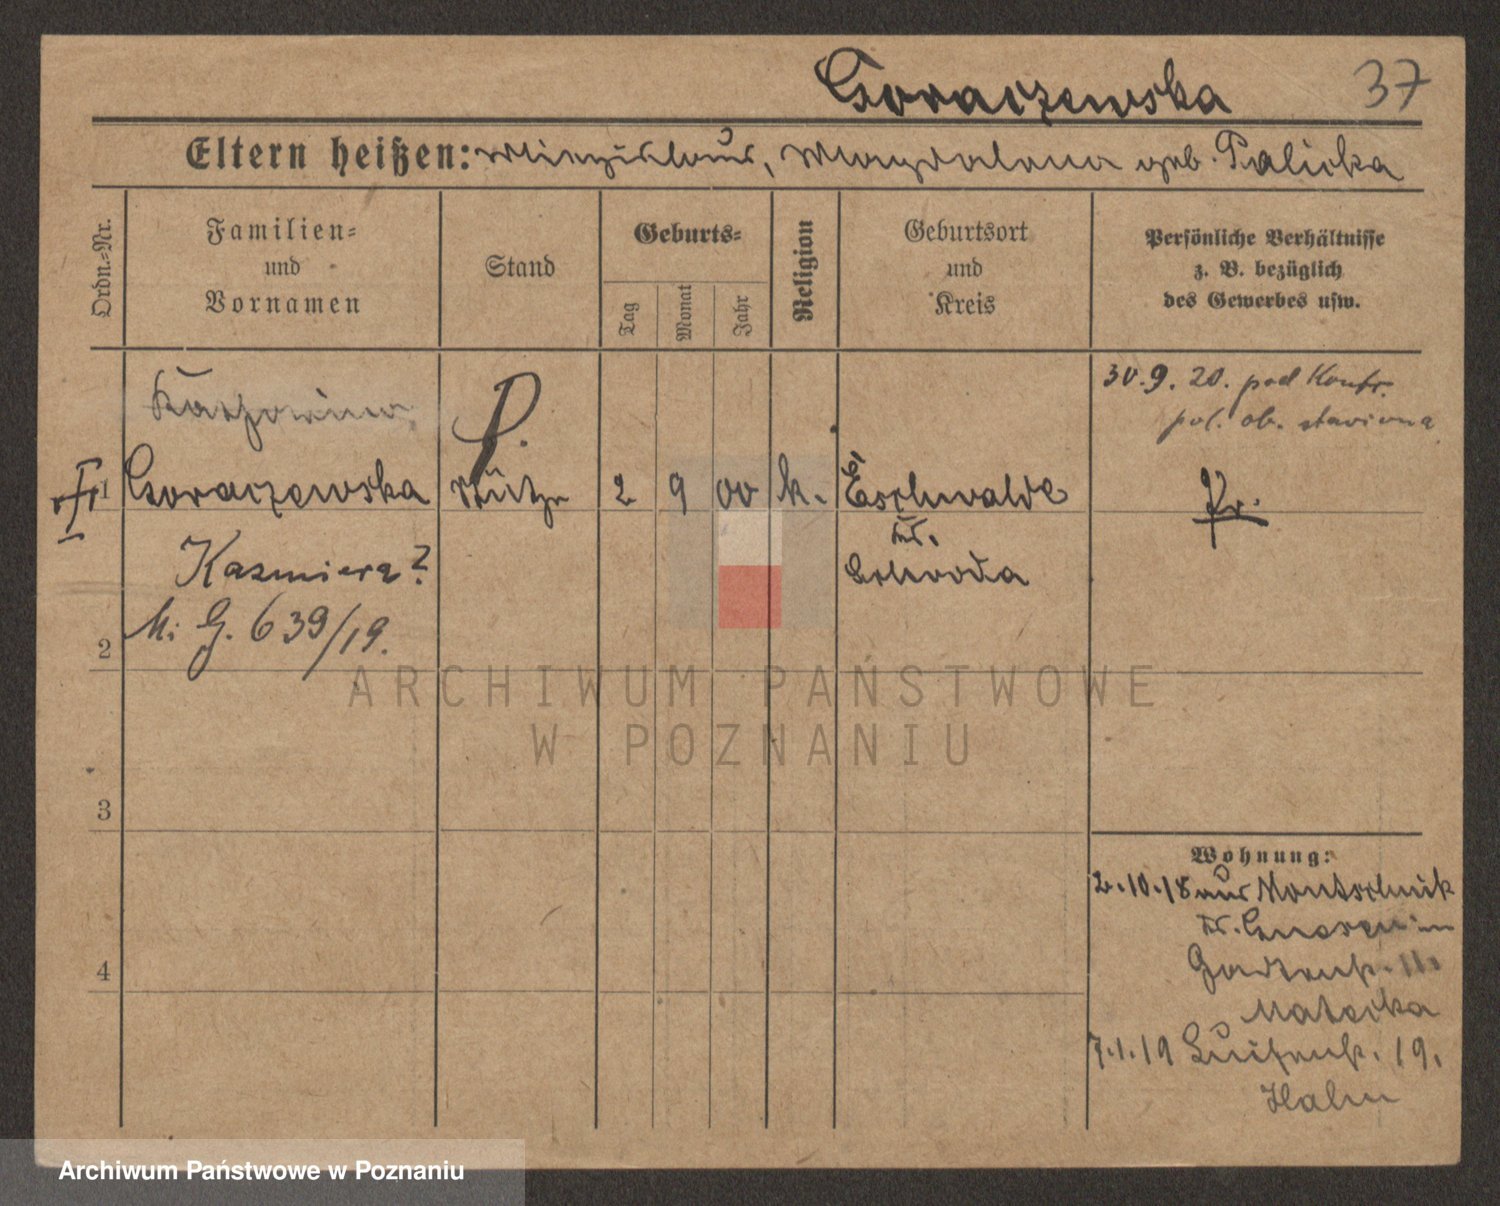 Goraczewska 37
Eltern heißen: Miezislaus, Magdalena geb. Palicka
Ordn.-Nr.
Familien-
und
Vornamen
Stand
Geburts-
Tag
Monat
Jahr
Religion
Geburtsort
und
Kreis
Persönliche Verhältnisse
z. B. bezüglich
des Gewerbes usw.
30.9.20. pod Kontr.
pol. ob. stawiona
P.
Frl 1 Goraczewska Stütze 2 9 00 k. Eschwalde Pr.
Kr.
Kazmiera? Schroda
M. G. 639/19.
2
ARCHIWUM PAŃSTWOWE
W POZNANIU
3
Wohnung:
2.10.18 aus Montschnik
Kr. Gnesen in
Gartenstr. 11.
Matecka
4
7.1.19 Luisenstr. 19.
Hahn
Archiwum Państwowe w Poznaniu